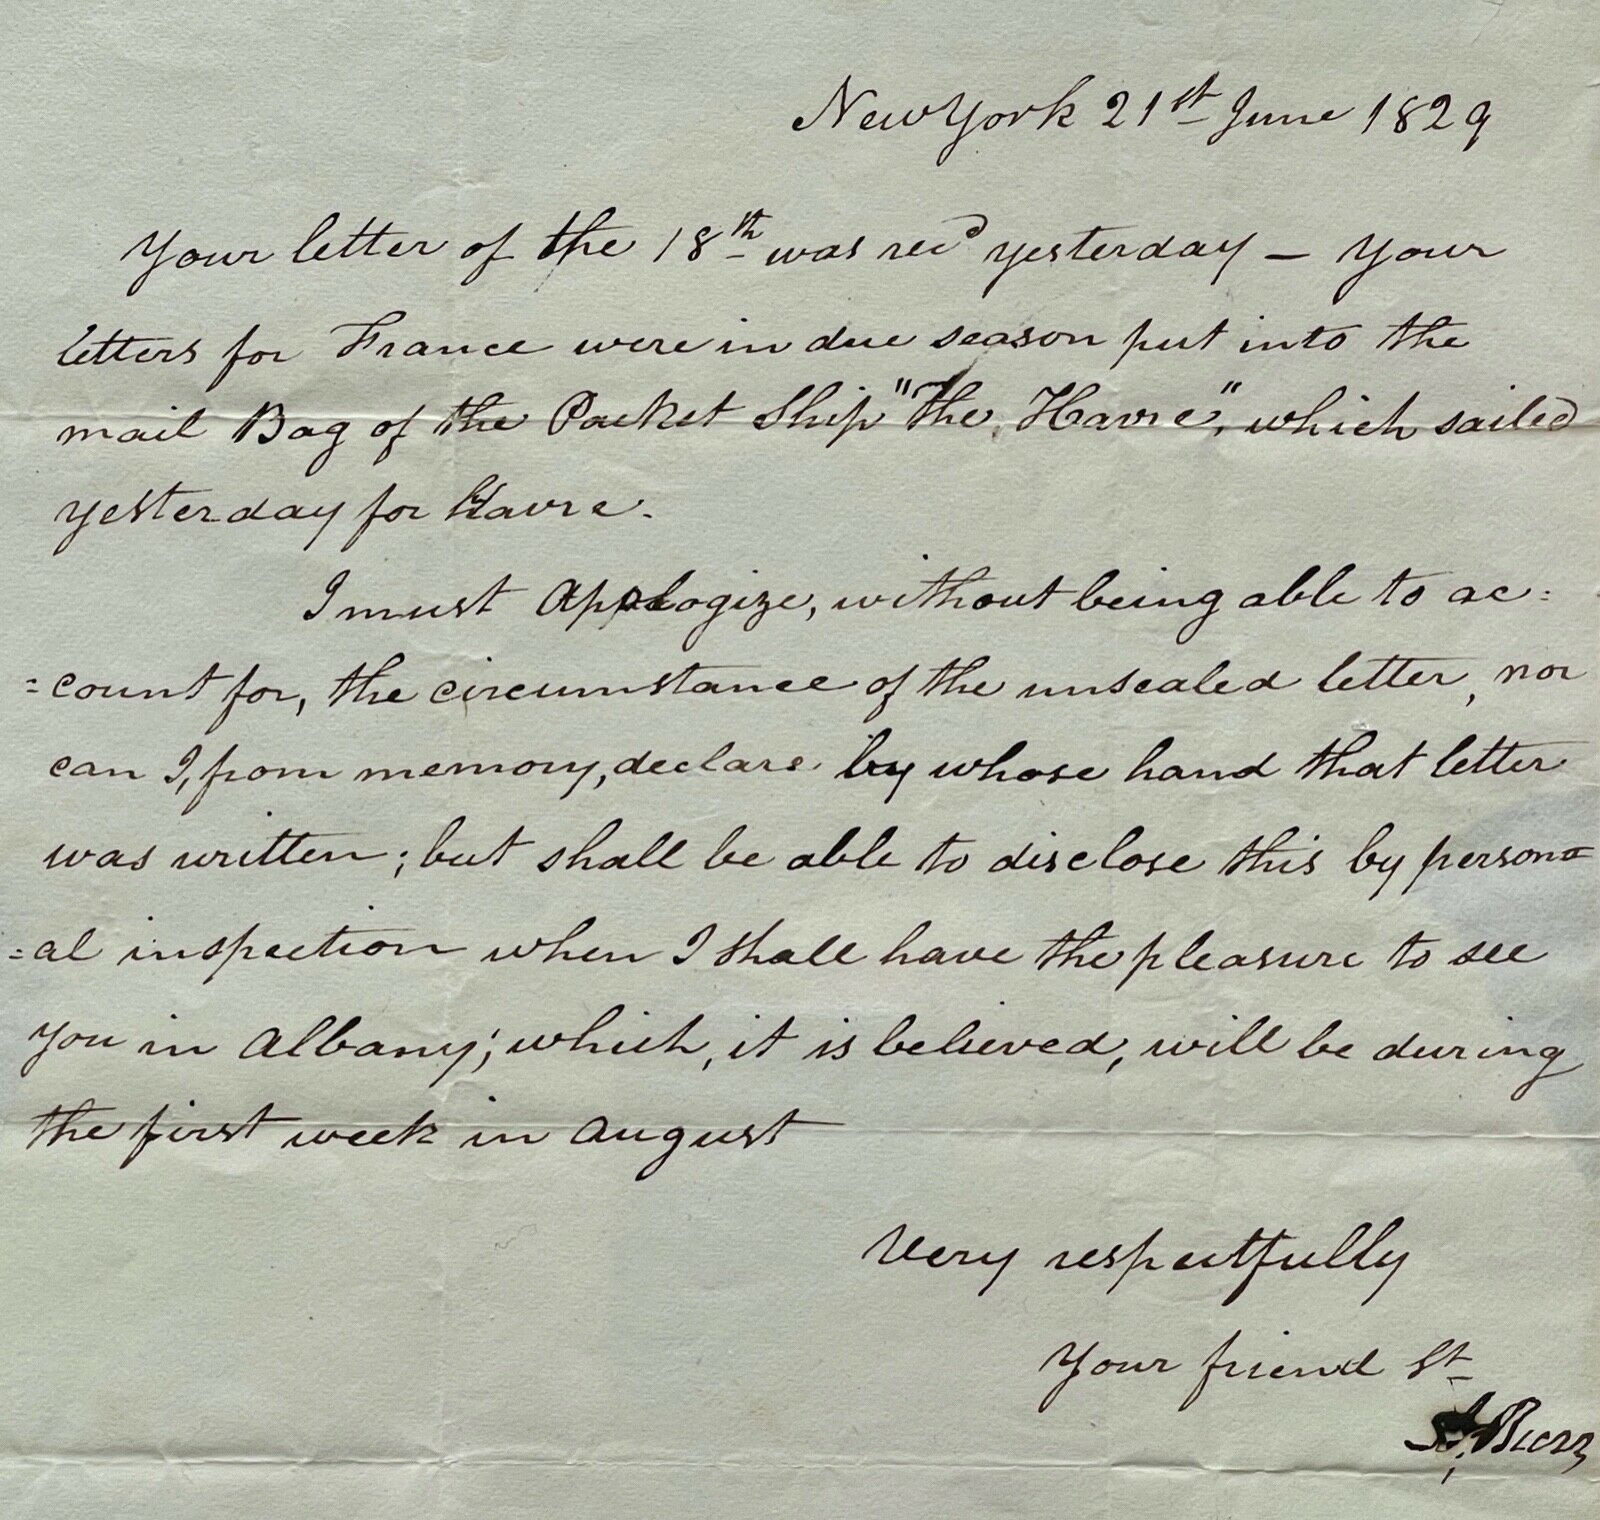 New York 21st June 1829
Your letter of the 18th was recd yesterday — Your
letters for France were in due season put into the
mail Bag of the Packet Ship "The Havre", which sailed
yesterday for Havre.
I must Apologize, without being able to ac=
=count for, the circumstance of the unsealed letter, nor
can I, from memory, declare by whose hand that letter
was written; but shall be able to disclose this by person=
=al inspection when I shall have the pleasure to see
you in Albany; which, it is believed, will be during
the first week in August
Very respectfully
Your friend St
A. Burr